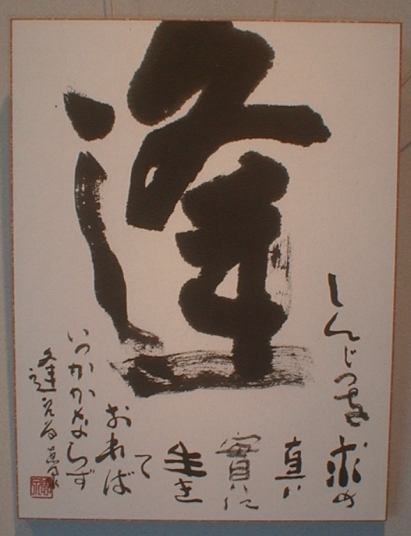 逢
しんじつを求め
真
實に
生き
て
おれば
いつかかならず